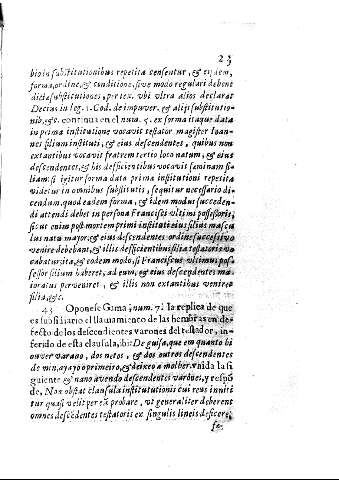 23
bio in substitutionibus repetita censentur, & eisdem,
forma, ordine, & conditione, sive modo regulari debent
dictæ substitutiones, per tex. ubi ultra alios declarat
Decius in leg. 1. Cod. de impuber. & alijs substitutio-
nib, &c. continua en el num. 4. ex forma itaque data
in prima institutione vocavit testator magister Ioan-
nes filium instituti, & eius descendentes, quibus non
extantibus vocavit fratrem tertio loco natum, & eius
descendentes, & his deficientibus vocavit fæminam fi-
liam: si igitur forma data in prima institutioni repetita
videtur in omnibus substitutis, sequitur necessario di-
cendum, quod eadem forma, & idem modus succeden-
di attendi debet in persona Francisci ultimi possessoris,
sicut enim post mortem primi instituti eius filius mascu-
lus natu maior, & eius descendentes ordine successivo
venire debebant, & illis deficientibus filia testatoris vo-
cabatur ita, & eodem modo, si Franciscus ultimus pos-
sessor filium haberet, ad eum, & eius descendentes ma-
ioratus perveniret, & illis non extantibus veniret
filia, &c.
43 Oponese Gama num. 7. la replica de que
es subsidiario el llamamiento de las hembras en de-
fecto de los descendientes varones del testador, in-
ferido de esta clausula, ibi: De guisa, que em quanto bi
ouver varaõ, dos netos, & dos outros descendentes
de min, ayayo primeiro, & deixe o a molher, unida la si
guiente & naõ avendo descendentes varones, y respõ
de, Non obstat clausula institutionis cui reus innitit
tur quasi velit per eã probare, ut generaliter deberent
omnes descẽdentes testatoris ex singulis lineis deficere,